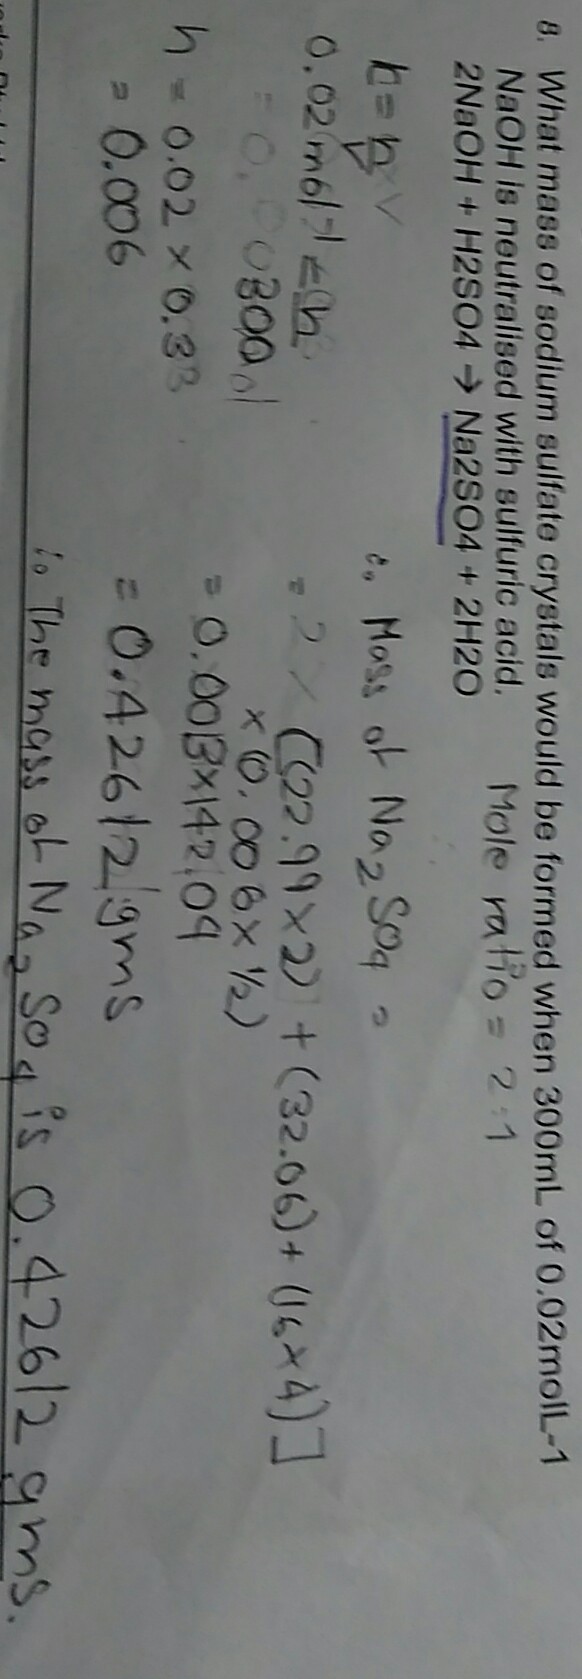 8. What mass of sodium sulfate crystals would be formed when 300mL of 0.02molL-1
NaOH is neutralised with sulfuric acid. Mole ratio = 2:1
2NaOH + H2SO4 → Na2SO4 + 2H2O
n = 0.02 × 0.3
= 0.006
∴ Mass of Na2SO4 =
[(22.99×2) + (32.06) + (16×4)]
× (0.006 × 1/2)
= 0.003×142.04
= 0.42612 gms
∴ The mass of Na2SO4 is 0.42612 gms.